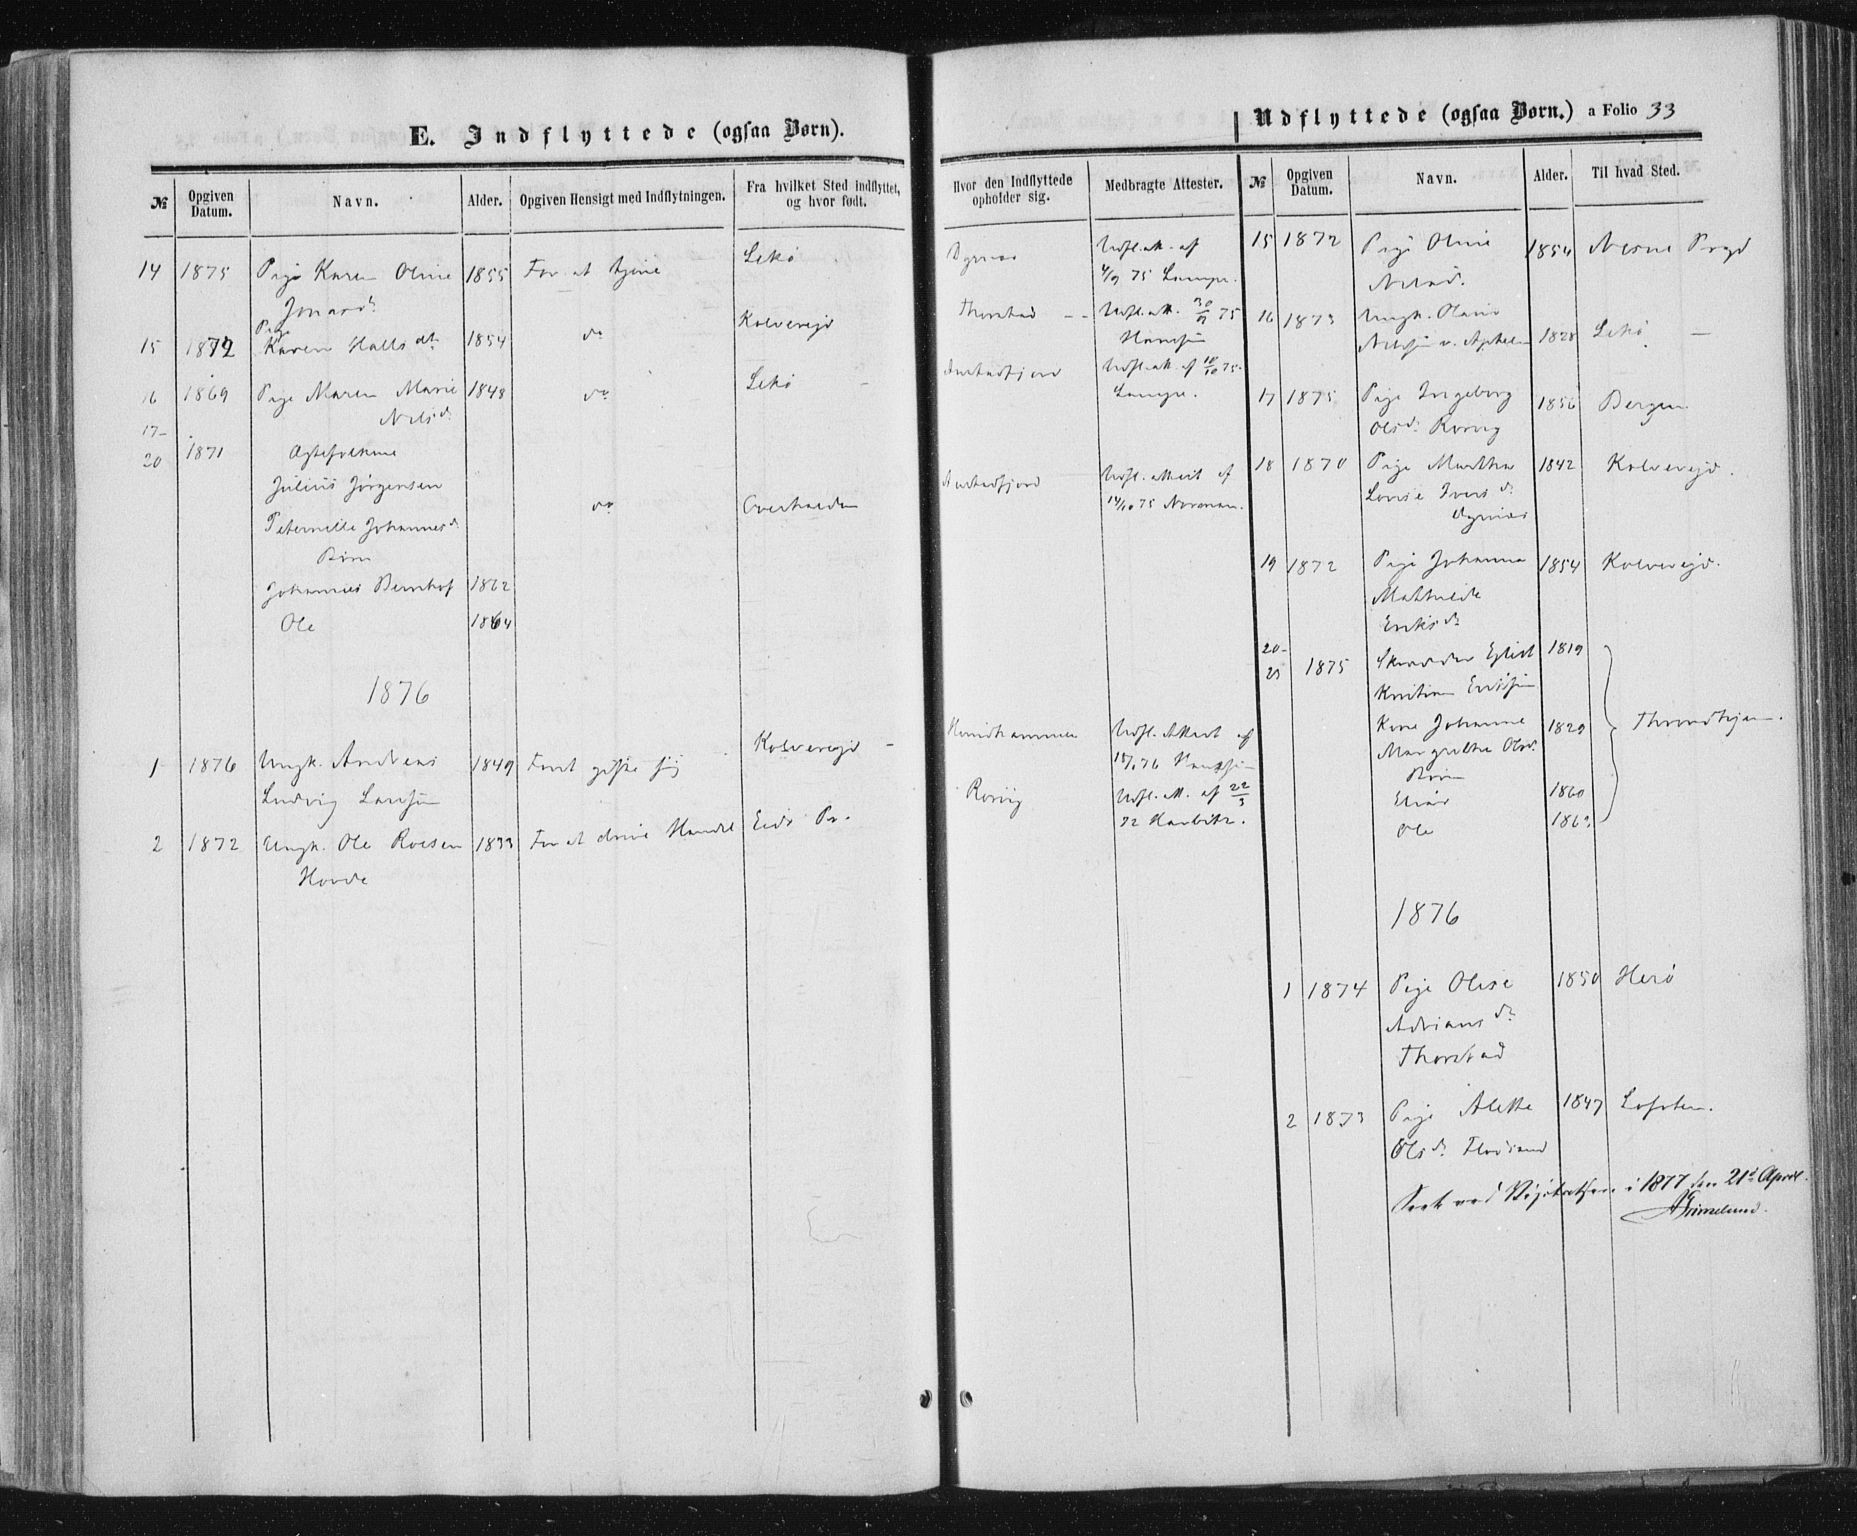 E. Indflyttede (ogsaa Børn).
№ Opgiven Datum. Navn. Alder. Opgiven Hensigt med Indflytningen. Fra hvilket Sted indflyttet, og hvor født. Hvor den Indflyttede opholder sig. Medbragte Attester.
14 1875 Pige Karen Oline 1855 For at tjene Lekø Dyrnæs Udfl.att. af
Jonasd. 4/9 75 Lampe.
15 1872 Pige Karen Halls dt. 1854 do Kolvereid Thorstad Udfl.att. 30/9 75
Hansen
16 1869 Pige Maren Marie 1848 do Lekø Udfl.att. af 18/10 75
Nilsd. Lampe.
17-
20 1871 Ægtefolkene
Julius Jørgensen
Peternelle Johannesd. do Overhalden Udfl. attest af
14/10 75 Norman.
Børn
Johannes Bernhof 1862
Ole 1864
1876
1 1876 Ungk. Andreas 1849 For at gifte sig Kolvereid Hundhammer Udfl. Attest af
Ludvig Larsen
2 1872 Ungk. Ole Roesen 1833 For at drive Handel Eids Pr. Rørvig Udfl. att. af 22/3
Hovde
Udflyttede (ogsaa Børn.) a Folio 33
№ Opgiven Datum. Navn. Alder. Til hvad Sted.
15 1872 Pige Oline 1854 Nesne Prgd
Nilsd.
16 1873 Ungk.
1828 Lekø
17 1875 Pige Ingeborg 1856 Bergen
Olsd. Rørvig
18 1870 Pige Martha 1842 Kolvereid.
Lovise Ivers d.
19 1872 Pige Johanna 1854 Kolvereid.
Mathilde
Eriks d.
20-
25 1875 1819
Kristian Eriksen
Johanne 1829 Throndhjem.
Margrethe Olsd.
Børn
1860
Ole
1876
1 1874 Pige Olise 1850 Herø
Adrians d.
Thorstad
2 1873 Pige Alette 1847 Lofoten.
Ols d. Flosand
Seet ved Visitatsen i 1877 den 21de April.
AGrimelund.